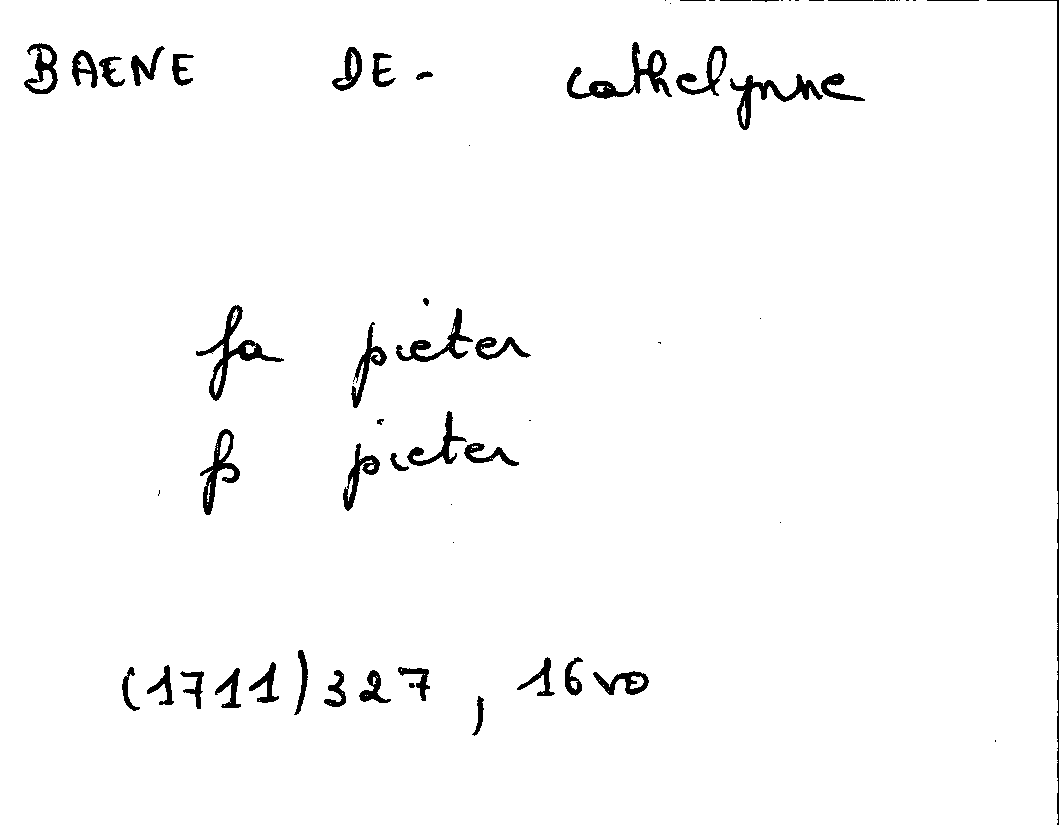 BAENE DE - Cathelynne
fa pieter
fs pieter
(1711) 327, 16vo